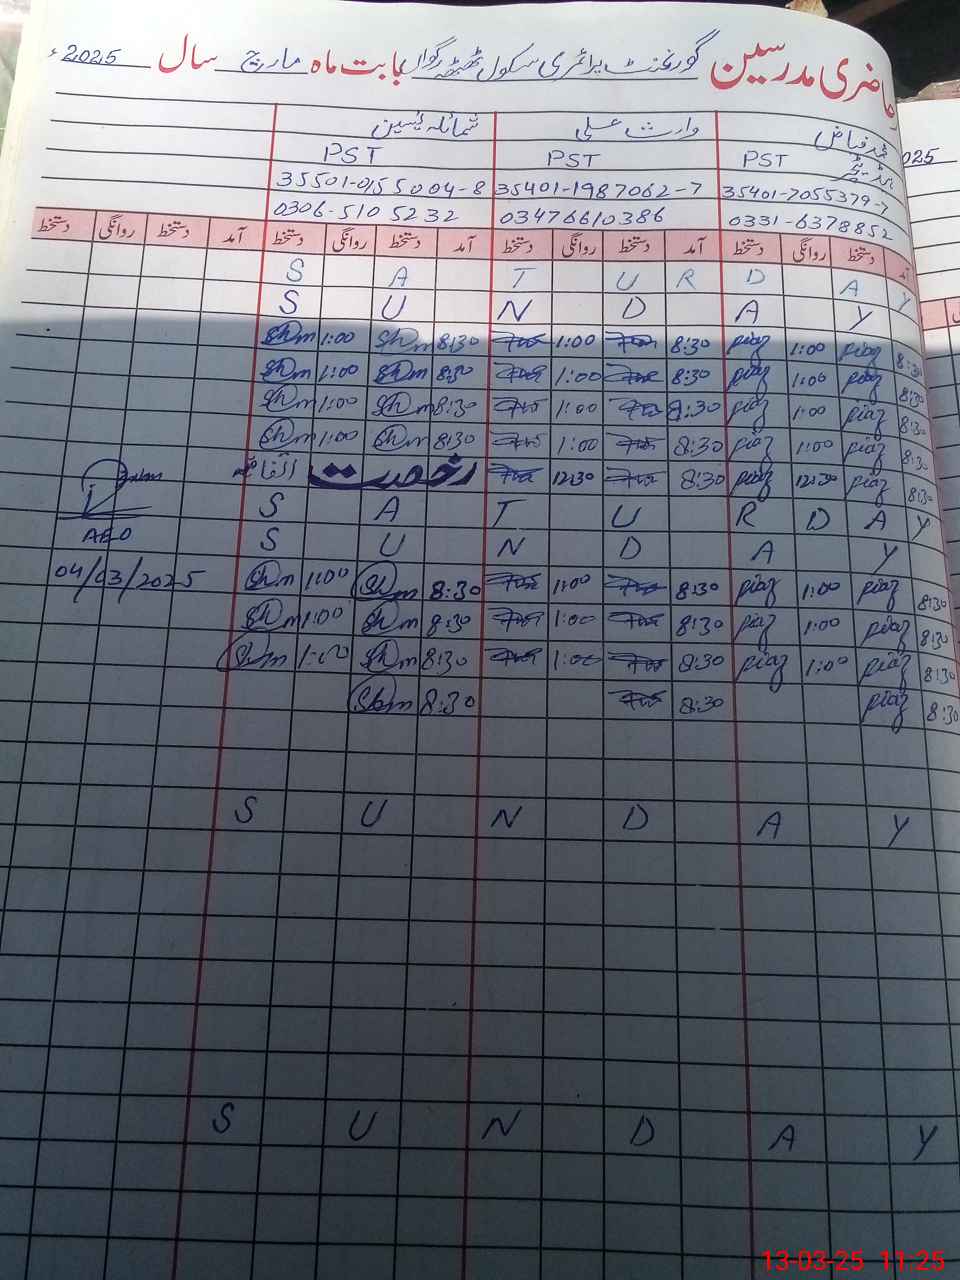 حاضری مدرسین گورنمنٹ پرائمری سکول ٹھٹھہ رگواں بابت ماہ مارچ سال 2025ء
محمد فیاض وارث علی شمائلہ یٰسین
ہیڈ ٹیچر
PST PST PST
35401-7055379-7 35401-1987062-7 35501-0155004-8
0331-6378852 03476610386 0306-5105232
آمد دستخط روانگی دستخط آمد دستخط روانگی دستخط آمد دستخط روانگی دستخط آمد دستخط روانگی دستخط
S A T U R D A Y
S U N D A Y
Shm 1:00 Shm 8:30 1:00 8:30 piaz 1:00 piaz 8:30
Shm 1:00 Shm 8:30 1:00 8:30 piaz 1:00 piaz 8:30
Shm 1:00 Shm 8:30 1:00 8:30 piaz 1:00 piaz 8:30
Shm 1:00 Shm 8:30 1:00 8:30 piaz 1:00 piaz 8:30
رخصت اتفاقیہ 12:30 8:30 piaz 12:30 piaz 8:30
S A T U R D A Y
S U N D A Y
AEO
04/03/2025
Shm 1:00 Shm 8:30 1:00 8:30 piaz 1:00 piaz 8:30
Shm 1:00 Shm 8:30 1:00 8:30 piaz 1:00 piaz 8:30
Shm 1:00 Shm 8:30 1:00 8:30 piaz 1:00 piaz 8:30
Shm 8:30 8:30 piaz 8:30
S U N D A Y
S U N D A Y
025
13-03-25 11:25